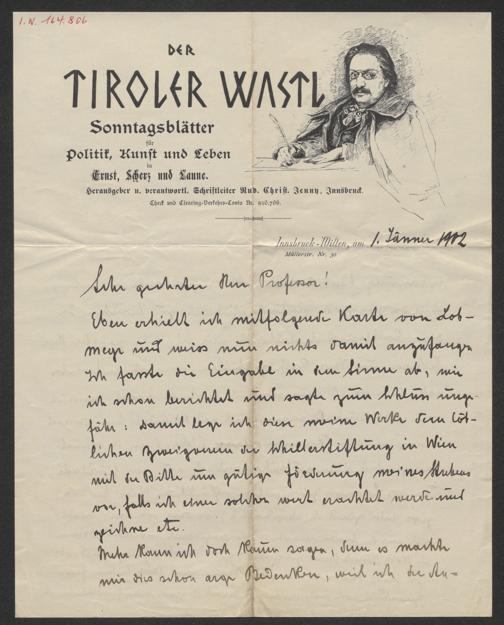 I. N. 164.806
DER
TIROLER WASTL
Sonntagsblätter
für
Politik, Kunst und Leben
in
Ernst, Scherz und Laune.
Herausgeber u. verantwortl. Schriftleiter Rud. Christ. Jenny, Innsbruck.
Check und Clearing-Verkehrs-Conto Nr.
Innsbruck-Wilten, am 1. Jänner 1902
Müllerstr. Nr.
Sehr geehrter Herr Professor!
Eben erhielt ich mitfolgende Karte von Lob-
meyr und weiss nun nichts damit anzufangen
Ich fasste die Eingabe in dem Sinne ab, wie
ich schon berichtet und sagte zum Schluss unge-
fähr: Damit lege ich diese meine Werke dem löb-
lichen Zweigverein der Schillerstiftung in Wien
mit der Bitte um gütige Förderung meines Strebens
vor, falls ich einer solchen wert erachtet werde und
zeichne etc.
Mehr kann ich doch kaum sagen, denn es machte
mir dies schon arge Bedenken, weil ich die An-